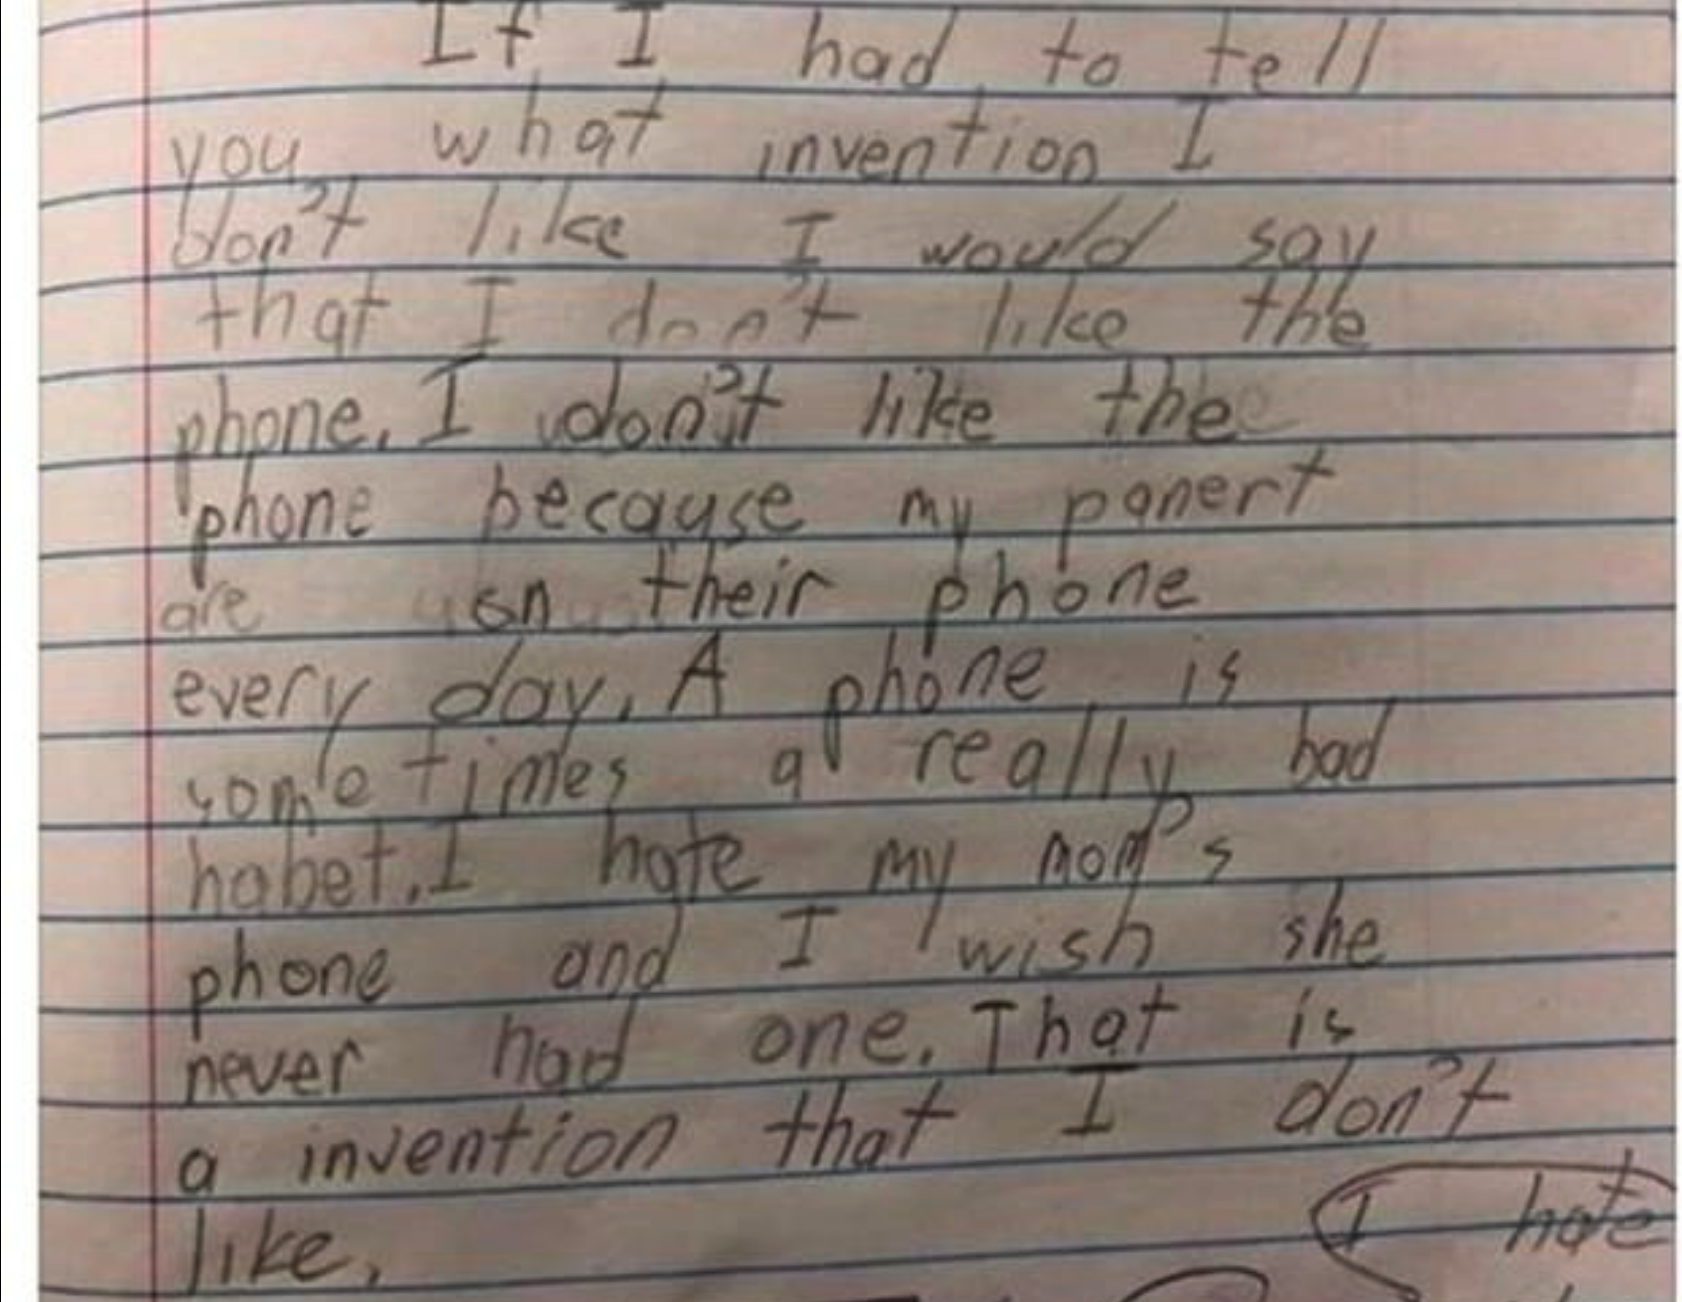 If I had to tell
you what invention I
don't like I would say
that I don't like the
phone. I don't like the
phone because my panert
are on their phone
every day. A phone is
sometimes a really bad
habet. I hate my mom's
phone and I wish she
never had one. That is
a invention that I don't
like.
I hate